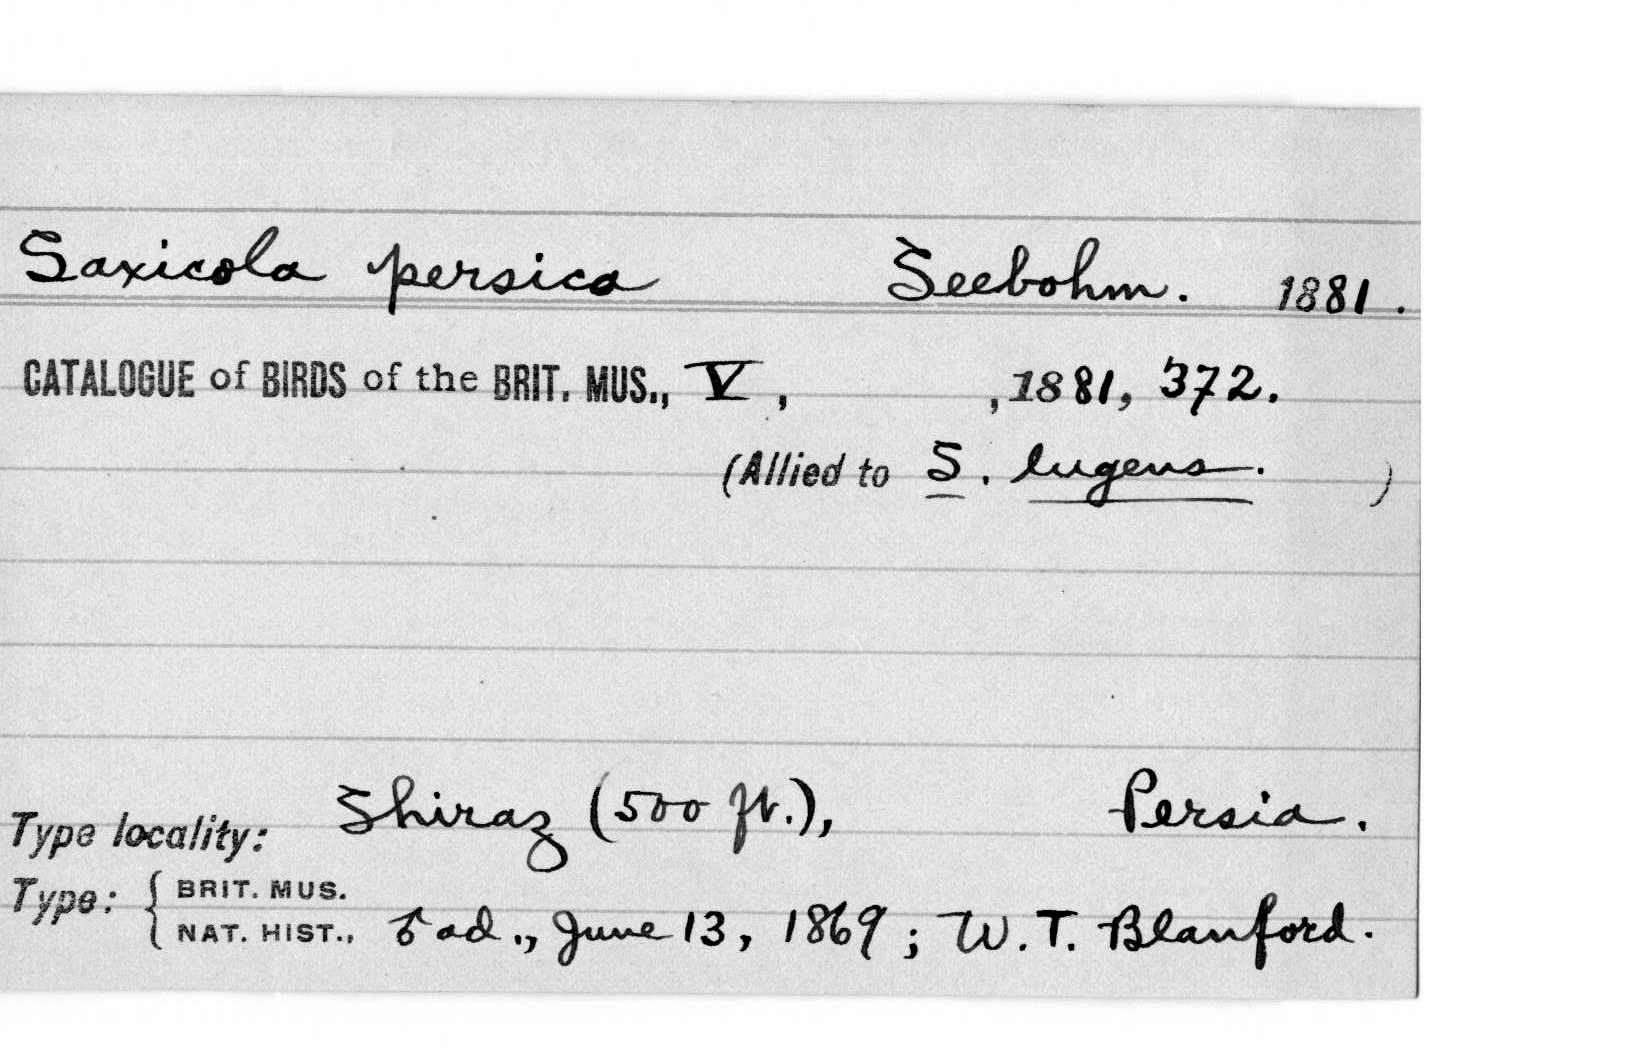 Saxicola persica Seebohm. 1881.
CATALOGUE of BIRDS of the BRIT. MUS., V, , 1881, 372.
(Allied to S. lugens. )
Type locality: Shiraz (500 ft.), Persia.
Type: { BRIT. MUS.
NAT. HIST., ♂ ad., June 13, 1869; W. T. Blanford.